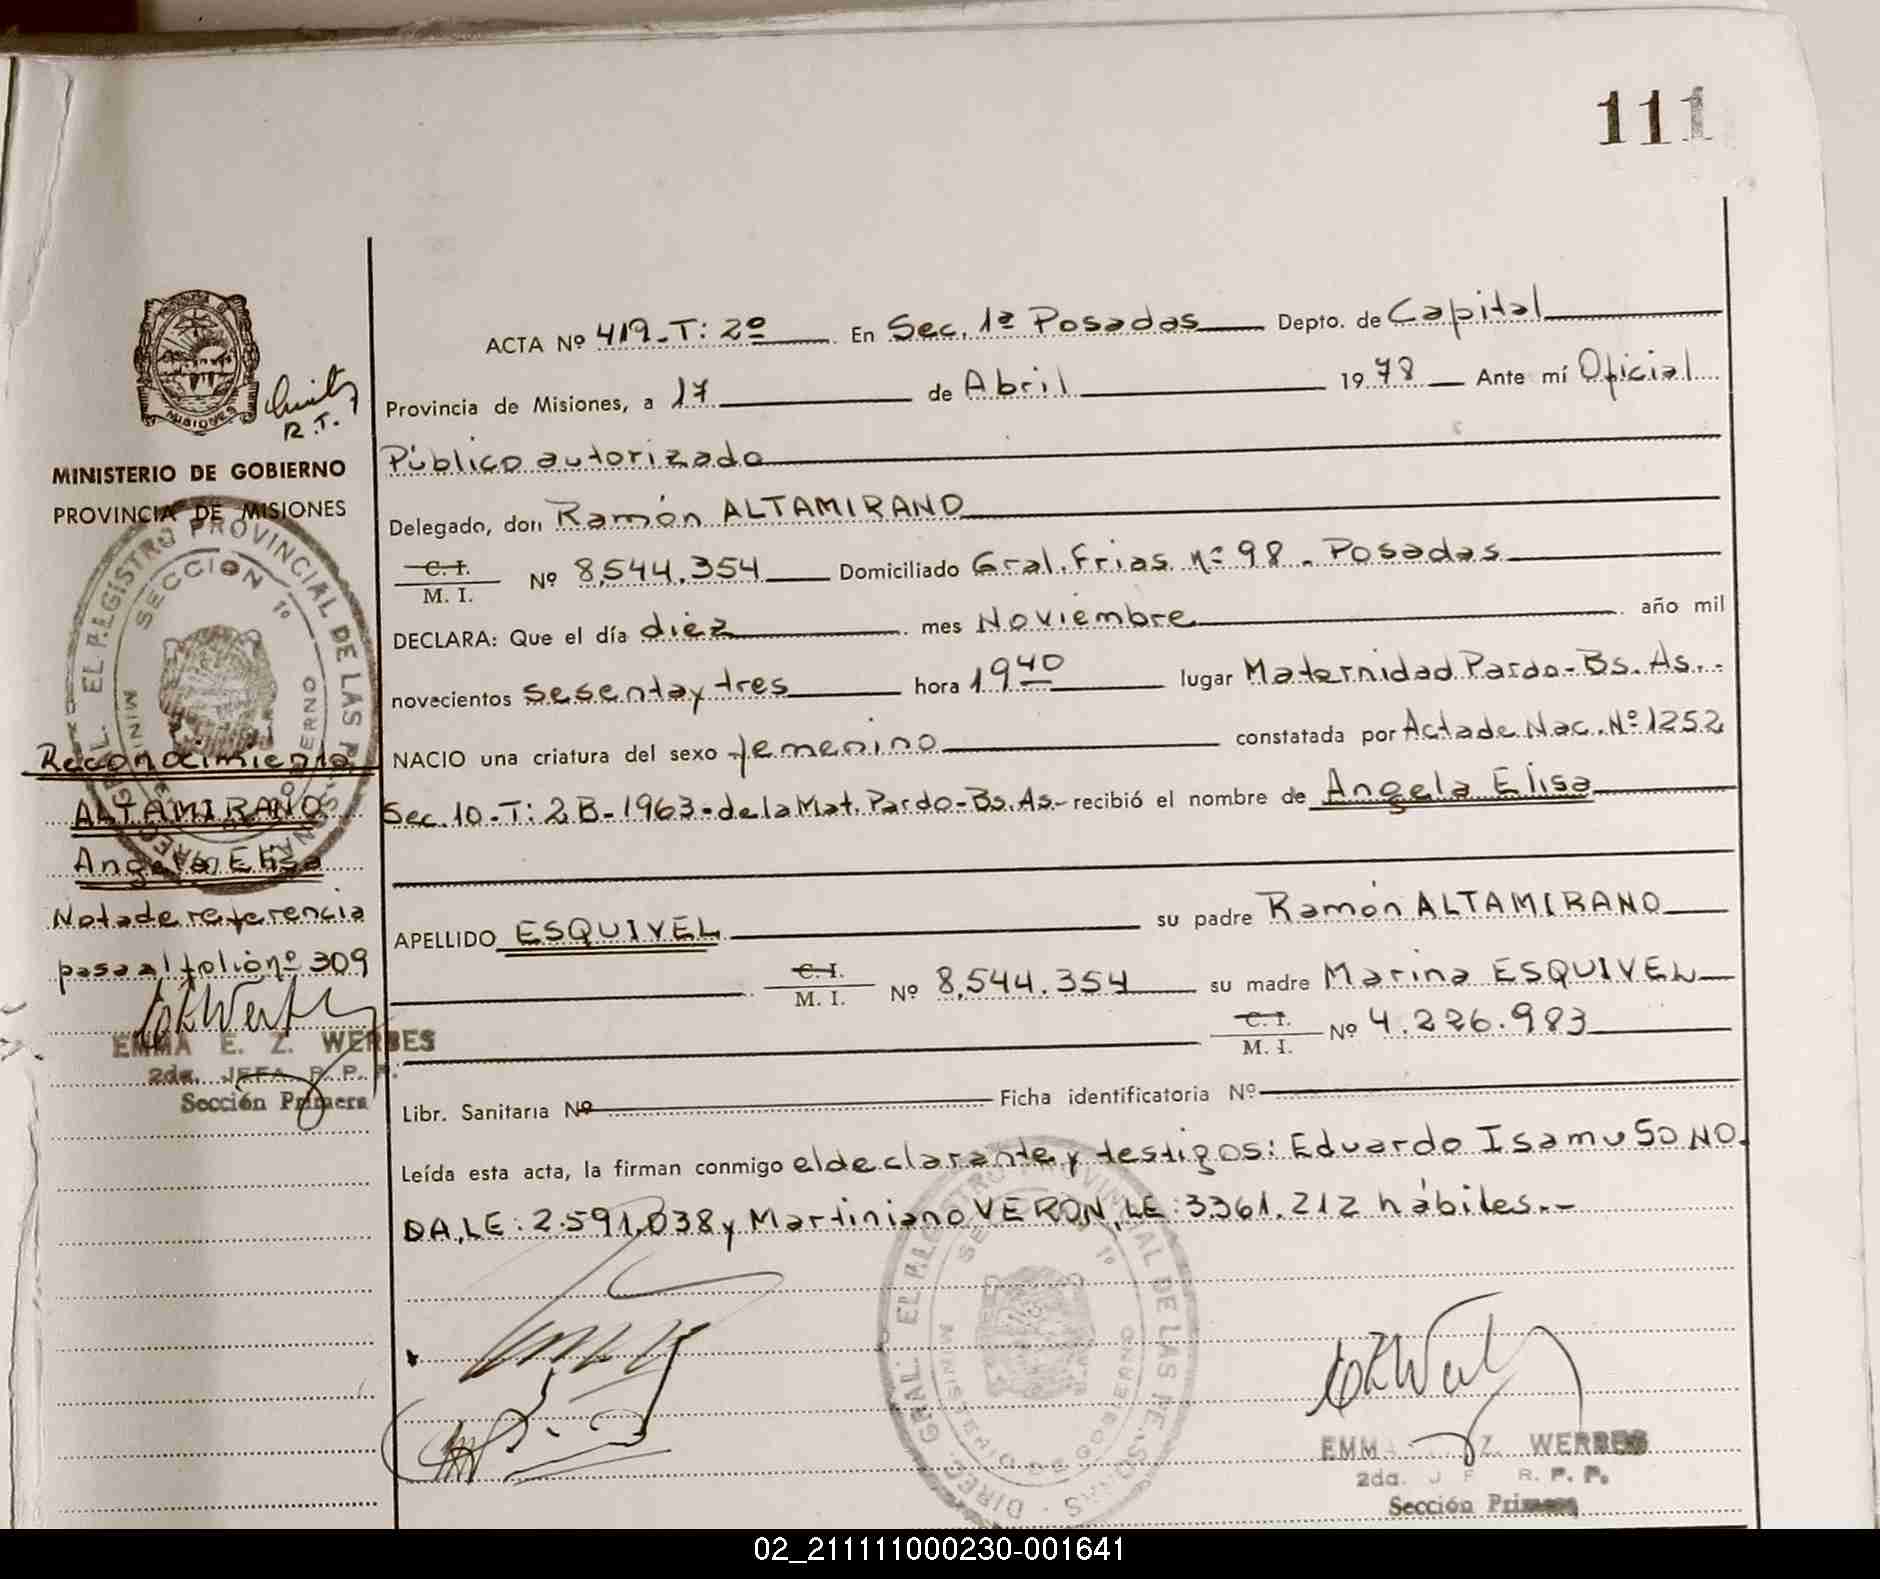 111
ACTA Nº 419-T: 2º En Sec. 1ª Posadas Depto. de Capital
Provincia de Misiones, a 17 de Abril 1978 Ante mí Oficial
Público autorizado
Delegado, don Ramón ALTAMIRANO
C. I.
M. I. Nº 8,544.354 Domiciliado Gral. Frias nº 98 - Posadas
DECLARA: Que el día diez mes Noviembre año mil
novecientos sesenta y tres hora 19 40 lugar Maternidad Pardo-Bs. As.-
NACIO una criatura del sexo femenino constatada por Acta de Nac. Nº 1252
Sec. 10-T: 2B-1963-de la Mat. Pardo-Bs. As- recibió el nombre de Angela Elisa
APELLIDO ESQUIVEL su padre Ramón ALTAMIRANO
C. I.
M. I. Nº 8,544.354 su madre Marina ESQUIVEL
C. I.
M. I. Nº 4.226.983
Libr. Sanitaria Nº Ficha identificatoria Nº
Leída esta acta, la firman conmigo el declarante y testigos: Eduardo Isamu SONO
DA, LE: 2.591.038 y Martiniano VERON, LE: 3.361.212 hábiles.-
EMMA Z. WERBES
2da. J F R. P. P.
Sección Primera
MISIONES
R.T.
MINISTERIO DE GOBIERNO
PROVINCIA DE MISIONES
Reconocimiento
ALTAMIRANO
Angela Elisa
Nota de referencia
pasa al folio nº 309
EMMA E. Z. WERBES
2da. JEFA R. P. P.
Sección Primera
DIREC. GRAL. EL REGISTRO PROVINCIAL DE LAS PERSONAS
SECCION 1º
MINISTERIO DE GOBIERNO
DIREC. GRAL. EL REGISTRO PROVINCIAL DE LAS PERSONAS
SECCION 1º
MINISTERIO DE GOBIERNO
02_211111000230-001641